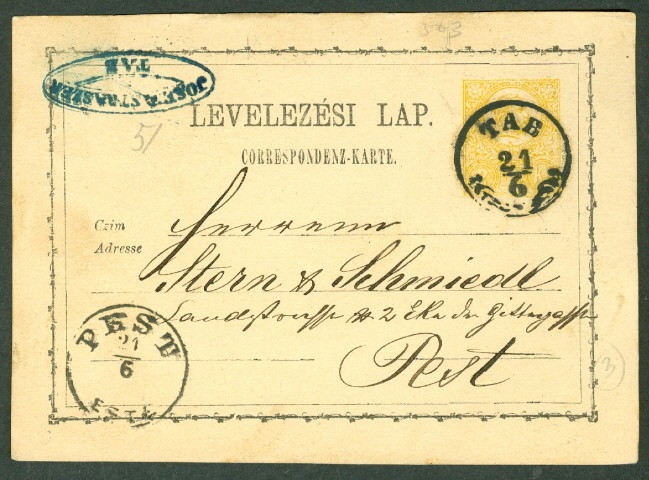 503
JOSEF A. STRASSER
TAB
LEVELEZÉSI LAP.
CORRESPONDENZ-KARTE.
51
TAB
21
6
Czim
Adresse
Herrenn
Stern & Schmiedl
Landstrasse # 2 Eke der Gittergasse
Pest
PEST
21
6
3